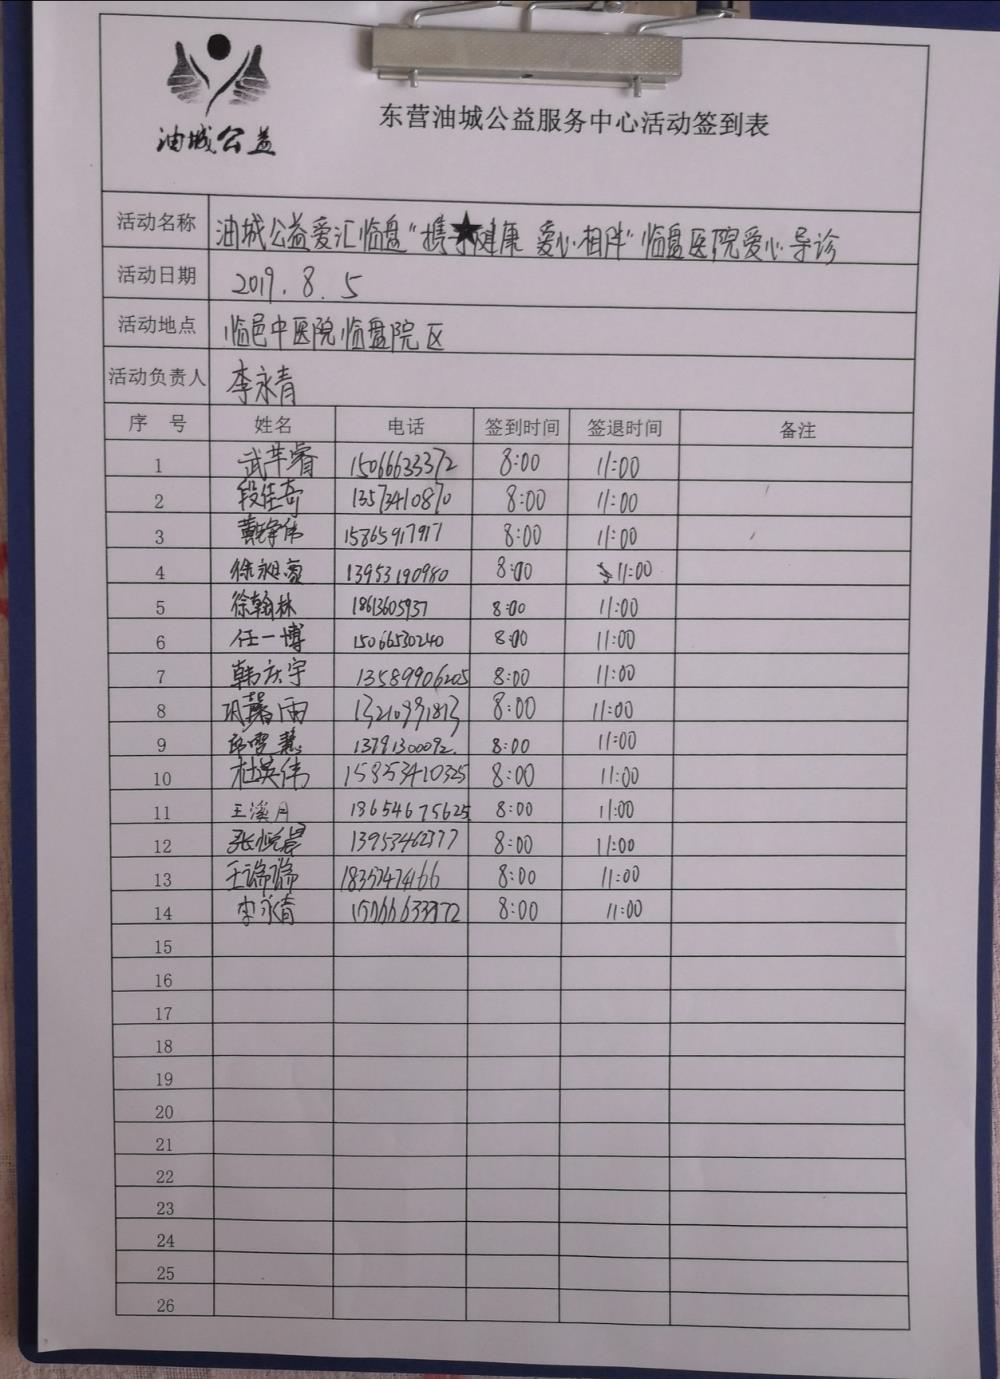 油城公益
东营油城公益服务中心活动签到表
活动名称 油城公益爱汇临盘“携★健康 爱心相伴”临盘医院爱心导诊
活动日期 2019.8.5
活动地点 临邑中医院临盘院区
活动负责人 李永青
序 号 姓名 电话 签到时间 签退时间 备注
1 武芊睿 15066633372 8:00 11:00
2 段佳奇 13573410870 8:00 11:00
3 15865917917 8:00 11:00
4 13953190980 8:00 11:00
5 徐翰林 18613605937 8:00 11:00
6 任一博 15066530240 8:00 11:00
7 韩庆宇 13589906205 8:00 11:00
8 巩馨雨 8:00 11:00
9 慧 13791300092. 8:00 11:00
10 杜英伟 15853410325 8:00 11:00
11 王溪月 18654675625 8:00 11:00
12 张悦晨 13953462377 8:00 11:00
13 王瑞瑞 8:00 11:00
14 李永青 15066633372 8:00 11:00
15
16
17
18
19
20
21
22
23
24
25
26